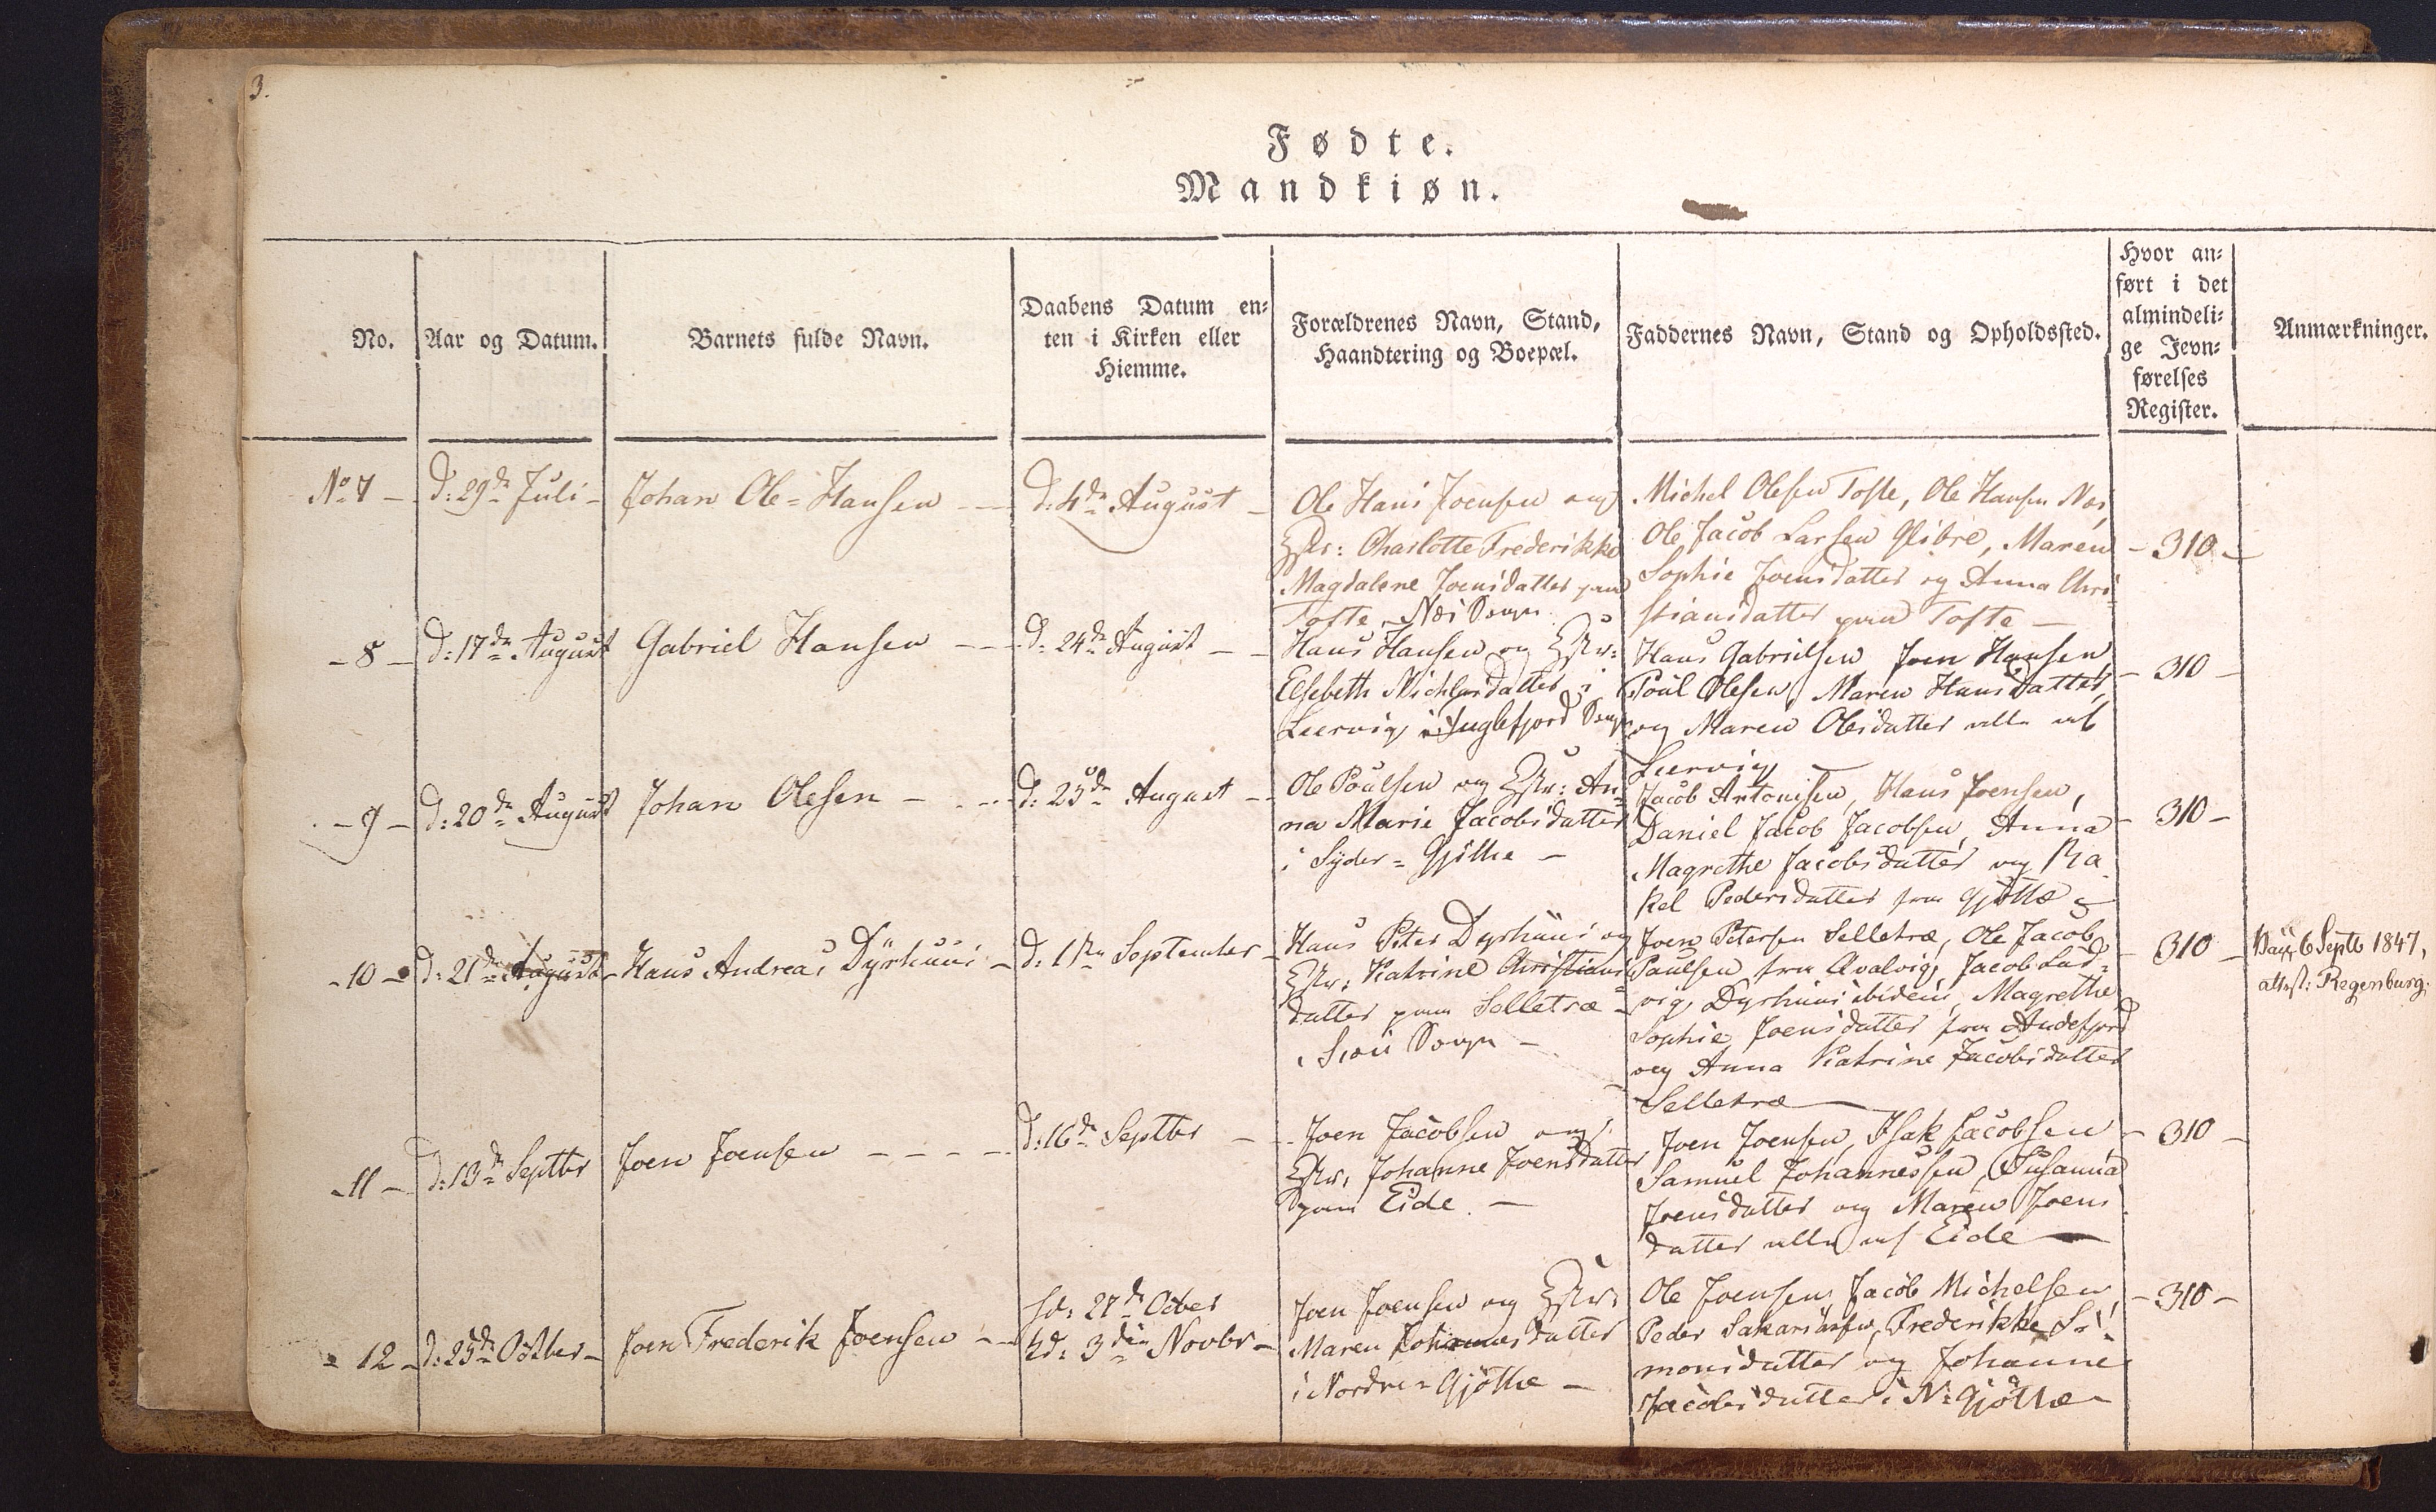 3.
Fødte.
Mandkiøn.
No.
Aar og Datum.
Barnets fulde Navn.
Daabens Datum en-
ten i Kirken eller
Hiemme.
Forældrenes Navn, Stand,
Haandtering og Boepæl.
Faddernes Navn, Stand og Opholdssted.
Hvor an-
ført i det
almindeli-
ge Jevn-
førelses
Register.
Anmærkninger.
No 7 -
d: 29de Juli -
Johan Ole = Hansen
d: 4de August -
Ole Hans Joensen og
Hstr: Charlotte Frederikke
Magdalene Joensdatter paa
Tofte, Næs Sogn
Michel Olesen Tofte, Ole Hansen Næs,
Ole Jacob Larsen Glibre, Maren
Sophie Joensdatter og Anna Chri-
stiansdatter paa Tofte -
- 310 -
- 8 -
d: 17de August
Gabriel Hansen
d: 24de August -
Hans Hansen og Hstr:
Elsebeth Michelsdatter i
Leervig i Fuglefjord Sogn
Hans Gabrielsen Joen Hansen,
Poul Olesen, Maren Hansdatter,
og Maren Olesdatter alle af
Leervig
- 310 -
- 9 -
d: 20de August
Johan Olesen -
d: 25de August -
Ole Poulsen og Hstr: An-
na Marie Jacobsdatter
i Syder = Gjøthe -
Jacob Antonisen, Hans Joensen,
Daniel Jacob Jacobsen, Anna
Magrethe Jacobsdatter og Ra-
kel Pedersdatter fra Gjøthe
- 310 -
- 10 -
d: 21de August -
Hans Andreas Dyrhuus -
d: 1ste September -
Hans Peter Dyrhuus og
Hstr: Katrine Christians
datter paa Selletræ -
i Siøv Sogn -
Joen Petersen Selletræ, Ole Jacob
Paulsen fra Qvalvig, Jacob Lud-
vig Dyrhuus ibidem, Magrethe
Sophie Joensdatter fra Andefjord
og Anna Katrine Jacobsdatter
Selletræ
- 310 -
6 Septb 1847,
attest: Regenburg.
- 11 -
d: 13de Septbr
Joen Joensen - - - -
d: 16de Septbr -
Joen Jacobsen og
Hstr: Johanne Joensdatter
paa Eide. -
Joen Joensen, Isak Jacobsen
Samuel Johannessen, Susanna
Joensdatter og Maren Joens
datter alle af Eide -
- 310 -
- 12 -
d: 25de Octber -
Joen Frederik Joensen -
hd: 27de Octber
kd: 3die Novbr -
Joen Joensen og Hstr:
Maren Johannesdatter
i Nordre = Gjøthe -
Ole Joensen, Jacob Michelsen,
Peder Sakariasen, Frederikke Si-
monsdatter og Johanne
Jacobsdatter i N: Gjøthe -
- 310 -